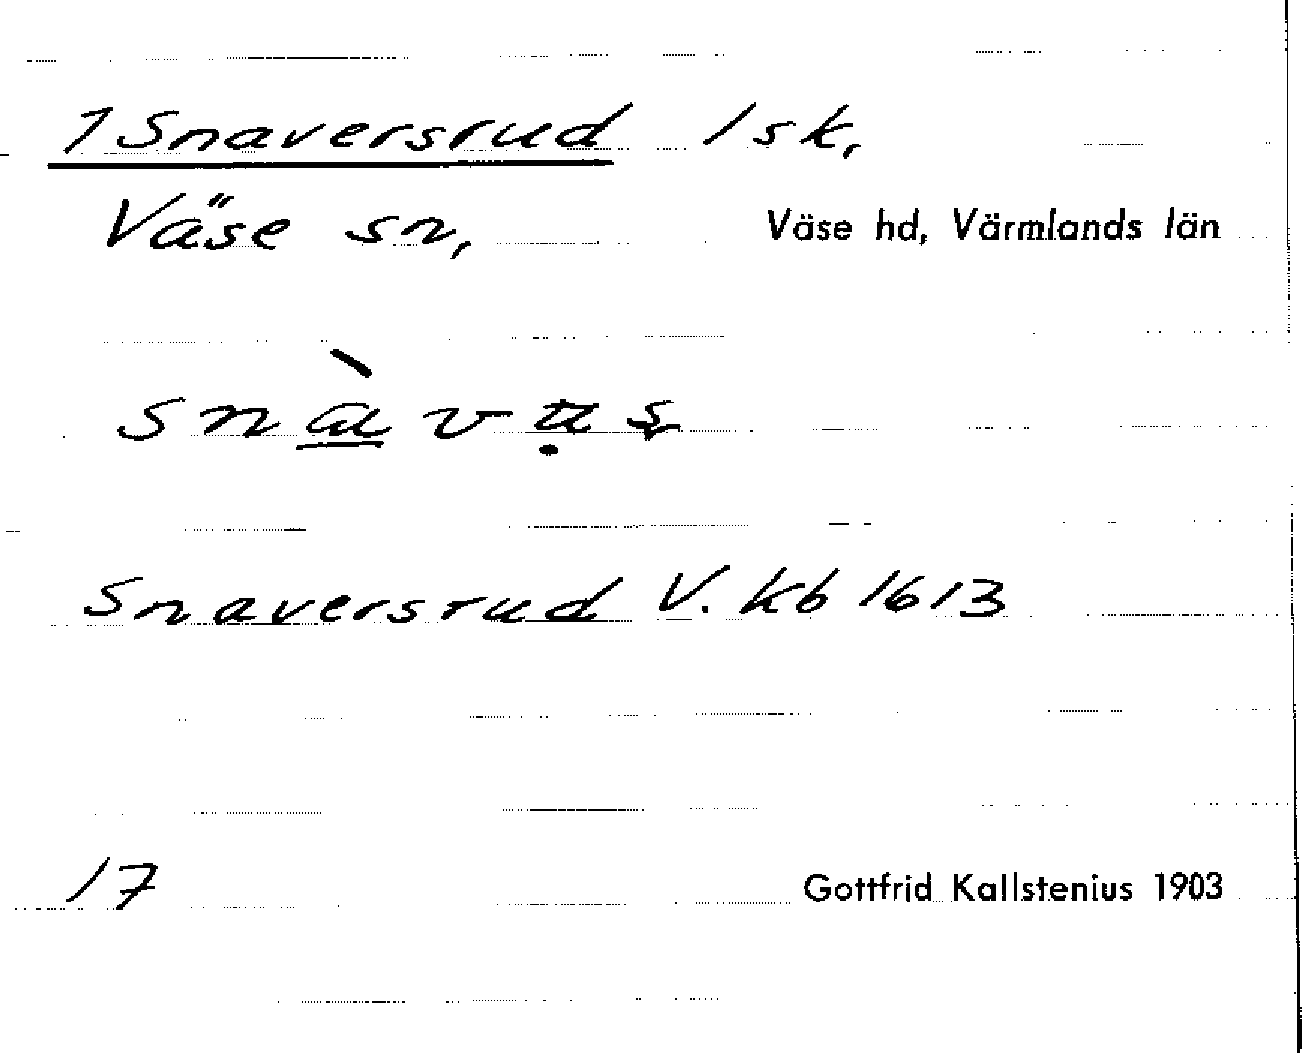 1 Snaversrud 1 sk,
Väse sn, Väse hd, Värmlands län
Snaversrud V. Kb 1613
17 Gottfrid Kallstenius 1903